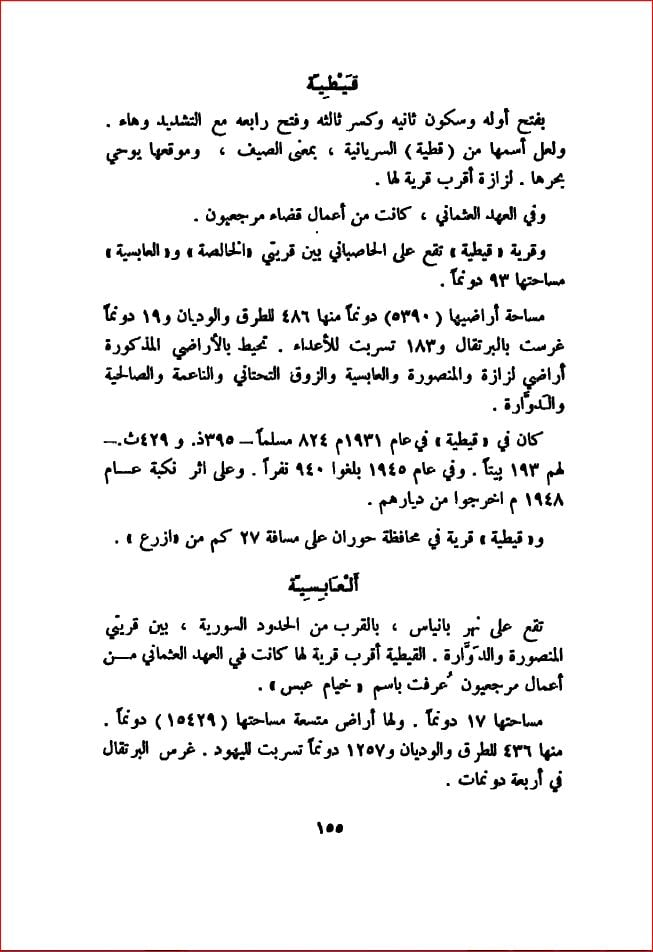 قَيْطِيّة
بفتح أوله وسكون ثانيه وكسر ثالثه وفتح رابعه مع التشديد وهاء .
ولعل أسمها من ( قطية ) السريانية ، بمعنى الصيف ، وموقعها يوحي
بحرها . لزازة أقرب قرية لها .
وفي العهد العثماني ، كانت من أعمال قضاء مرجعيون .
وقرية « قيطية » تقع على الحاصباني بين قريتي «الخالصة » و« العابسية »
مساحتها ٩٣ دونماً .
مساحة أراضيها ( ٥٣٩٠) دونماً منها ٤٨٦ للطرق والوديان و١٩ دونماً
غرست بالبرتقال و١٨٣ تسربت للأعداء . تحيط بالأراضي المذكورة
أراضي لزازة والمنصورة والعابسية والزوق التحتاني والناعمة والصالحية
والدوَّارة .
كان في « قيطية » في عام ١٩٣١م ٨٢٤ مسلماً – ٣٩٥ذ. و ٤٢٩ث.–
لهم ١٩٣ بيتاً . وفي عام ١٩٤٥ بلغوا ٩٤٠ نفراً . وعلى اثر نكبة عــام
١٩٤٨ م اخرجوا من ديارهم .
و« قيطية » قرية في محافظة حوران على مسافة ٢٧ كم من «ازرع » .
اَلْعَابِسِيّة
تقع على نهر بانياس ، بالقرب من الحدود السورية ، بين قريتي
المنصورة والدوَّارة . القيطية أقرب قرية لها كانت في العهد العثماني مــن
أعمال مرجعيون عُرفت باسم « خيام عبس » .
مساحتها ١٧ دونماً . ولها أراض متسعة مساحتها ( ١٥٤٢٩ ) دونماً .
منها ٤٣٦ للطرق والوديان و١٢٥٧ دونماً تسربت لليهود . غرس البرتقال
في أربعة دونمات .
١٥٥